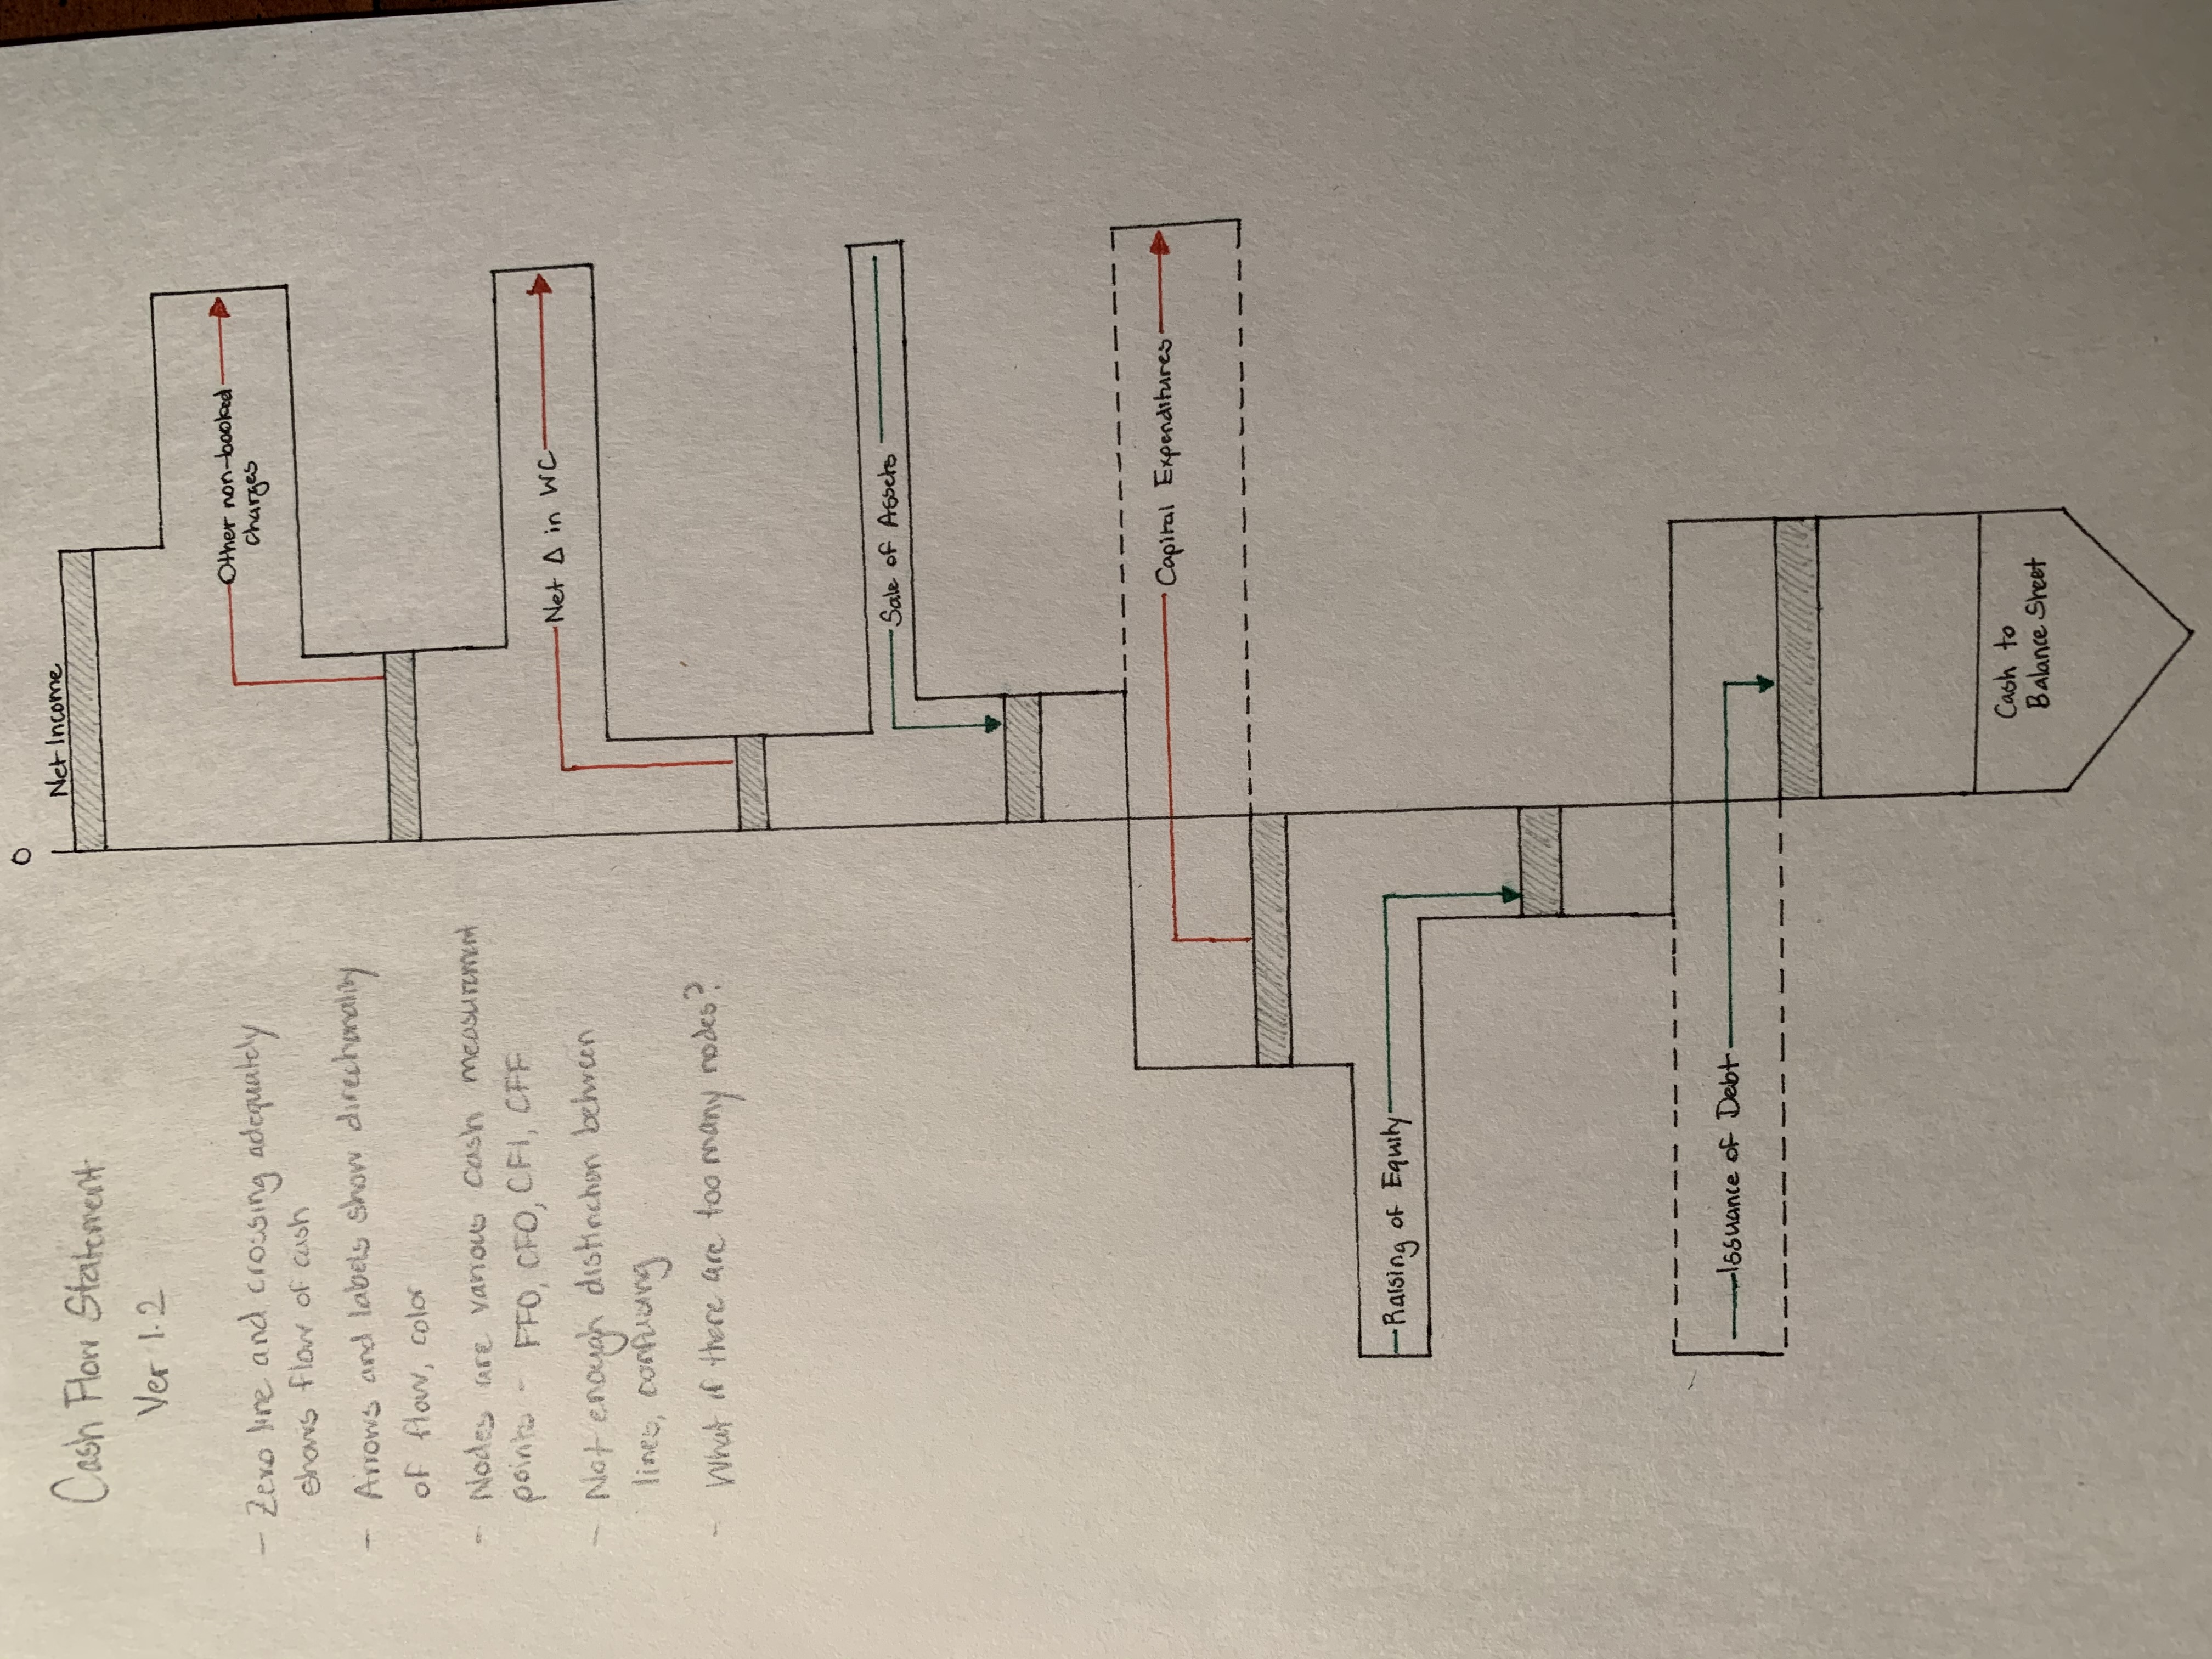 Cash Flow Statement
Ver 1.2
- Zero line and crossing adequately
shows flow of cash
- Arrows and labels show directionality
of flow, color
- Nodes are various cash measurement
points - FFO, CFO, CFI, CFF
- Not enough distinction between
lines, confusing
- What if there are too many nodes?
0
Net Income
Other non-booked
charges
Net Δ in WC
Sale of Assets
Capital Expenditures
Raising of Equity
Issuance of Debt
Cash to
Balance Sheet